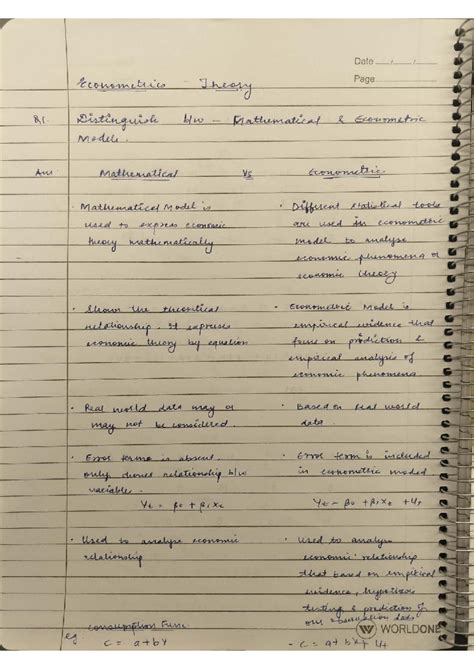 Date / /
Page
Econometrics Theory
Q1. Distinguish b/w - Mathematical & Econometric
Models.
Ans Mathematical Vs Econometric
· Mathematical Model is
used to express economic
theory mathematically
· Different statistical tools
are used in econometric
model to analyse
economic phenomena or
economic theory
· Shows the theoretical
relationship. It expresses
economic theory by equation
· Econometric Model is
empirical evidence that
focus on prediction &
empirical analysis of
economic phenomena.
· Real world data may or
may not be considered.
· Based on real world
data.
· Error terms is absent.
only shows relationship b/w
variables.
Yt = β0 + β1Xt
· Error term is included
in econometric model
Yt = β0 + β1Xt + Ut
· Used to analyse economic
relationship
· Used to analyse
economic relationship
that based on empirical
evidence, hypothesis
testing & prediction of
our data
eg consumption func
C = a + bY
- C = a + bX + Ut
WORLDONE